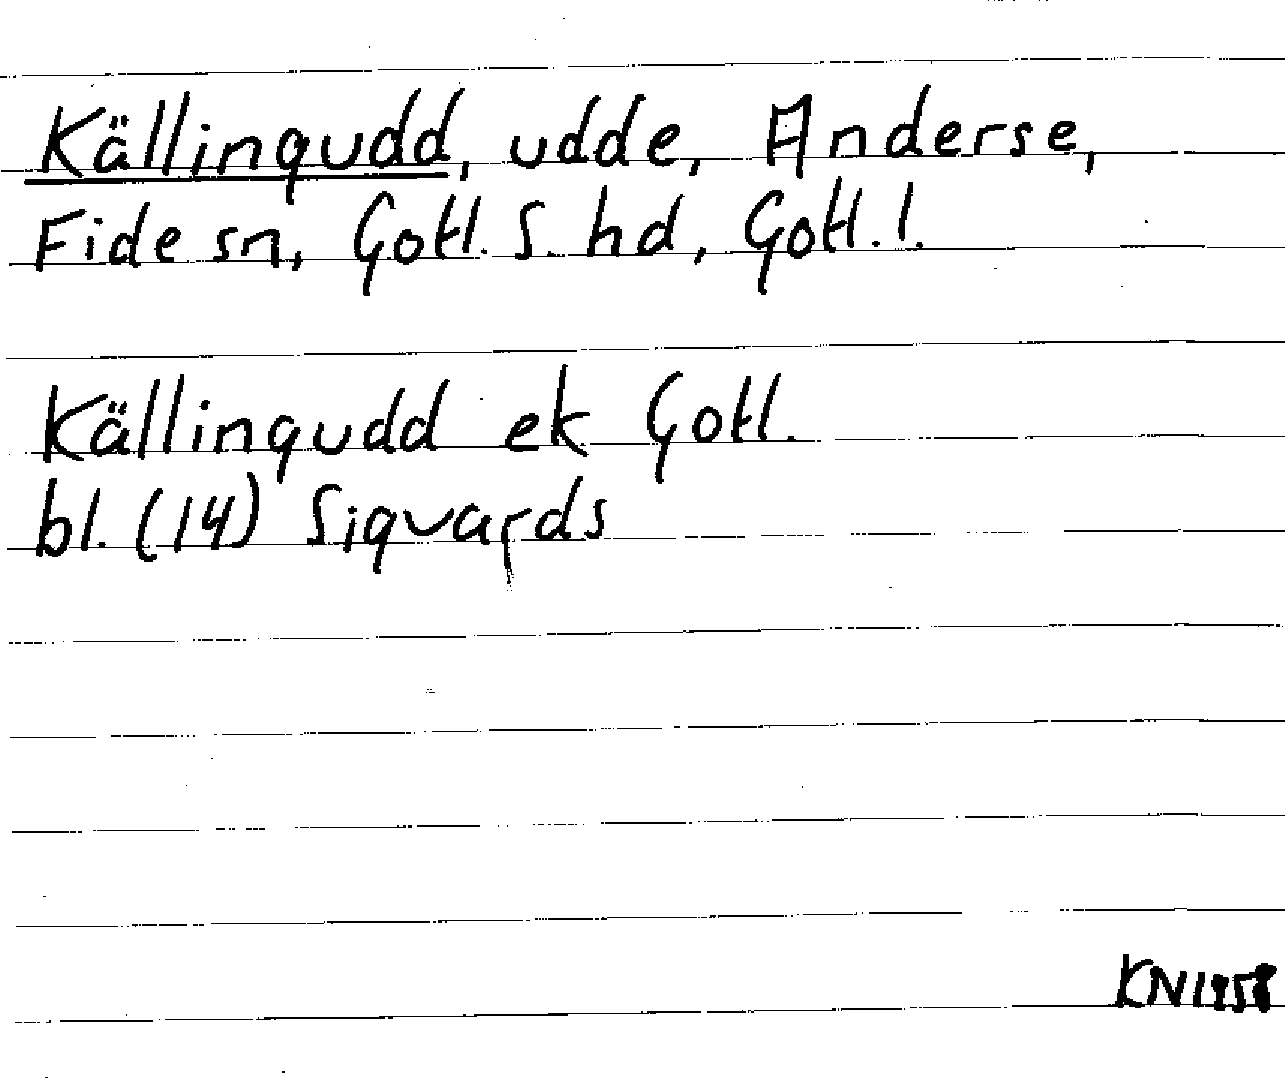 Källingudd, udde, Anderse,
Fide sn, Gotl. S. hd, Gotl. l.
Källingudd ek Gotl.
bl. (14) Sigvards
KN 1958